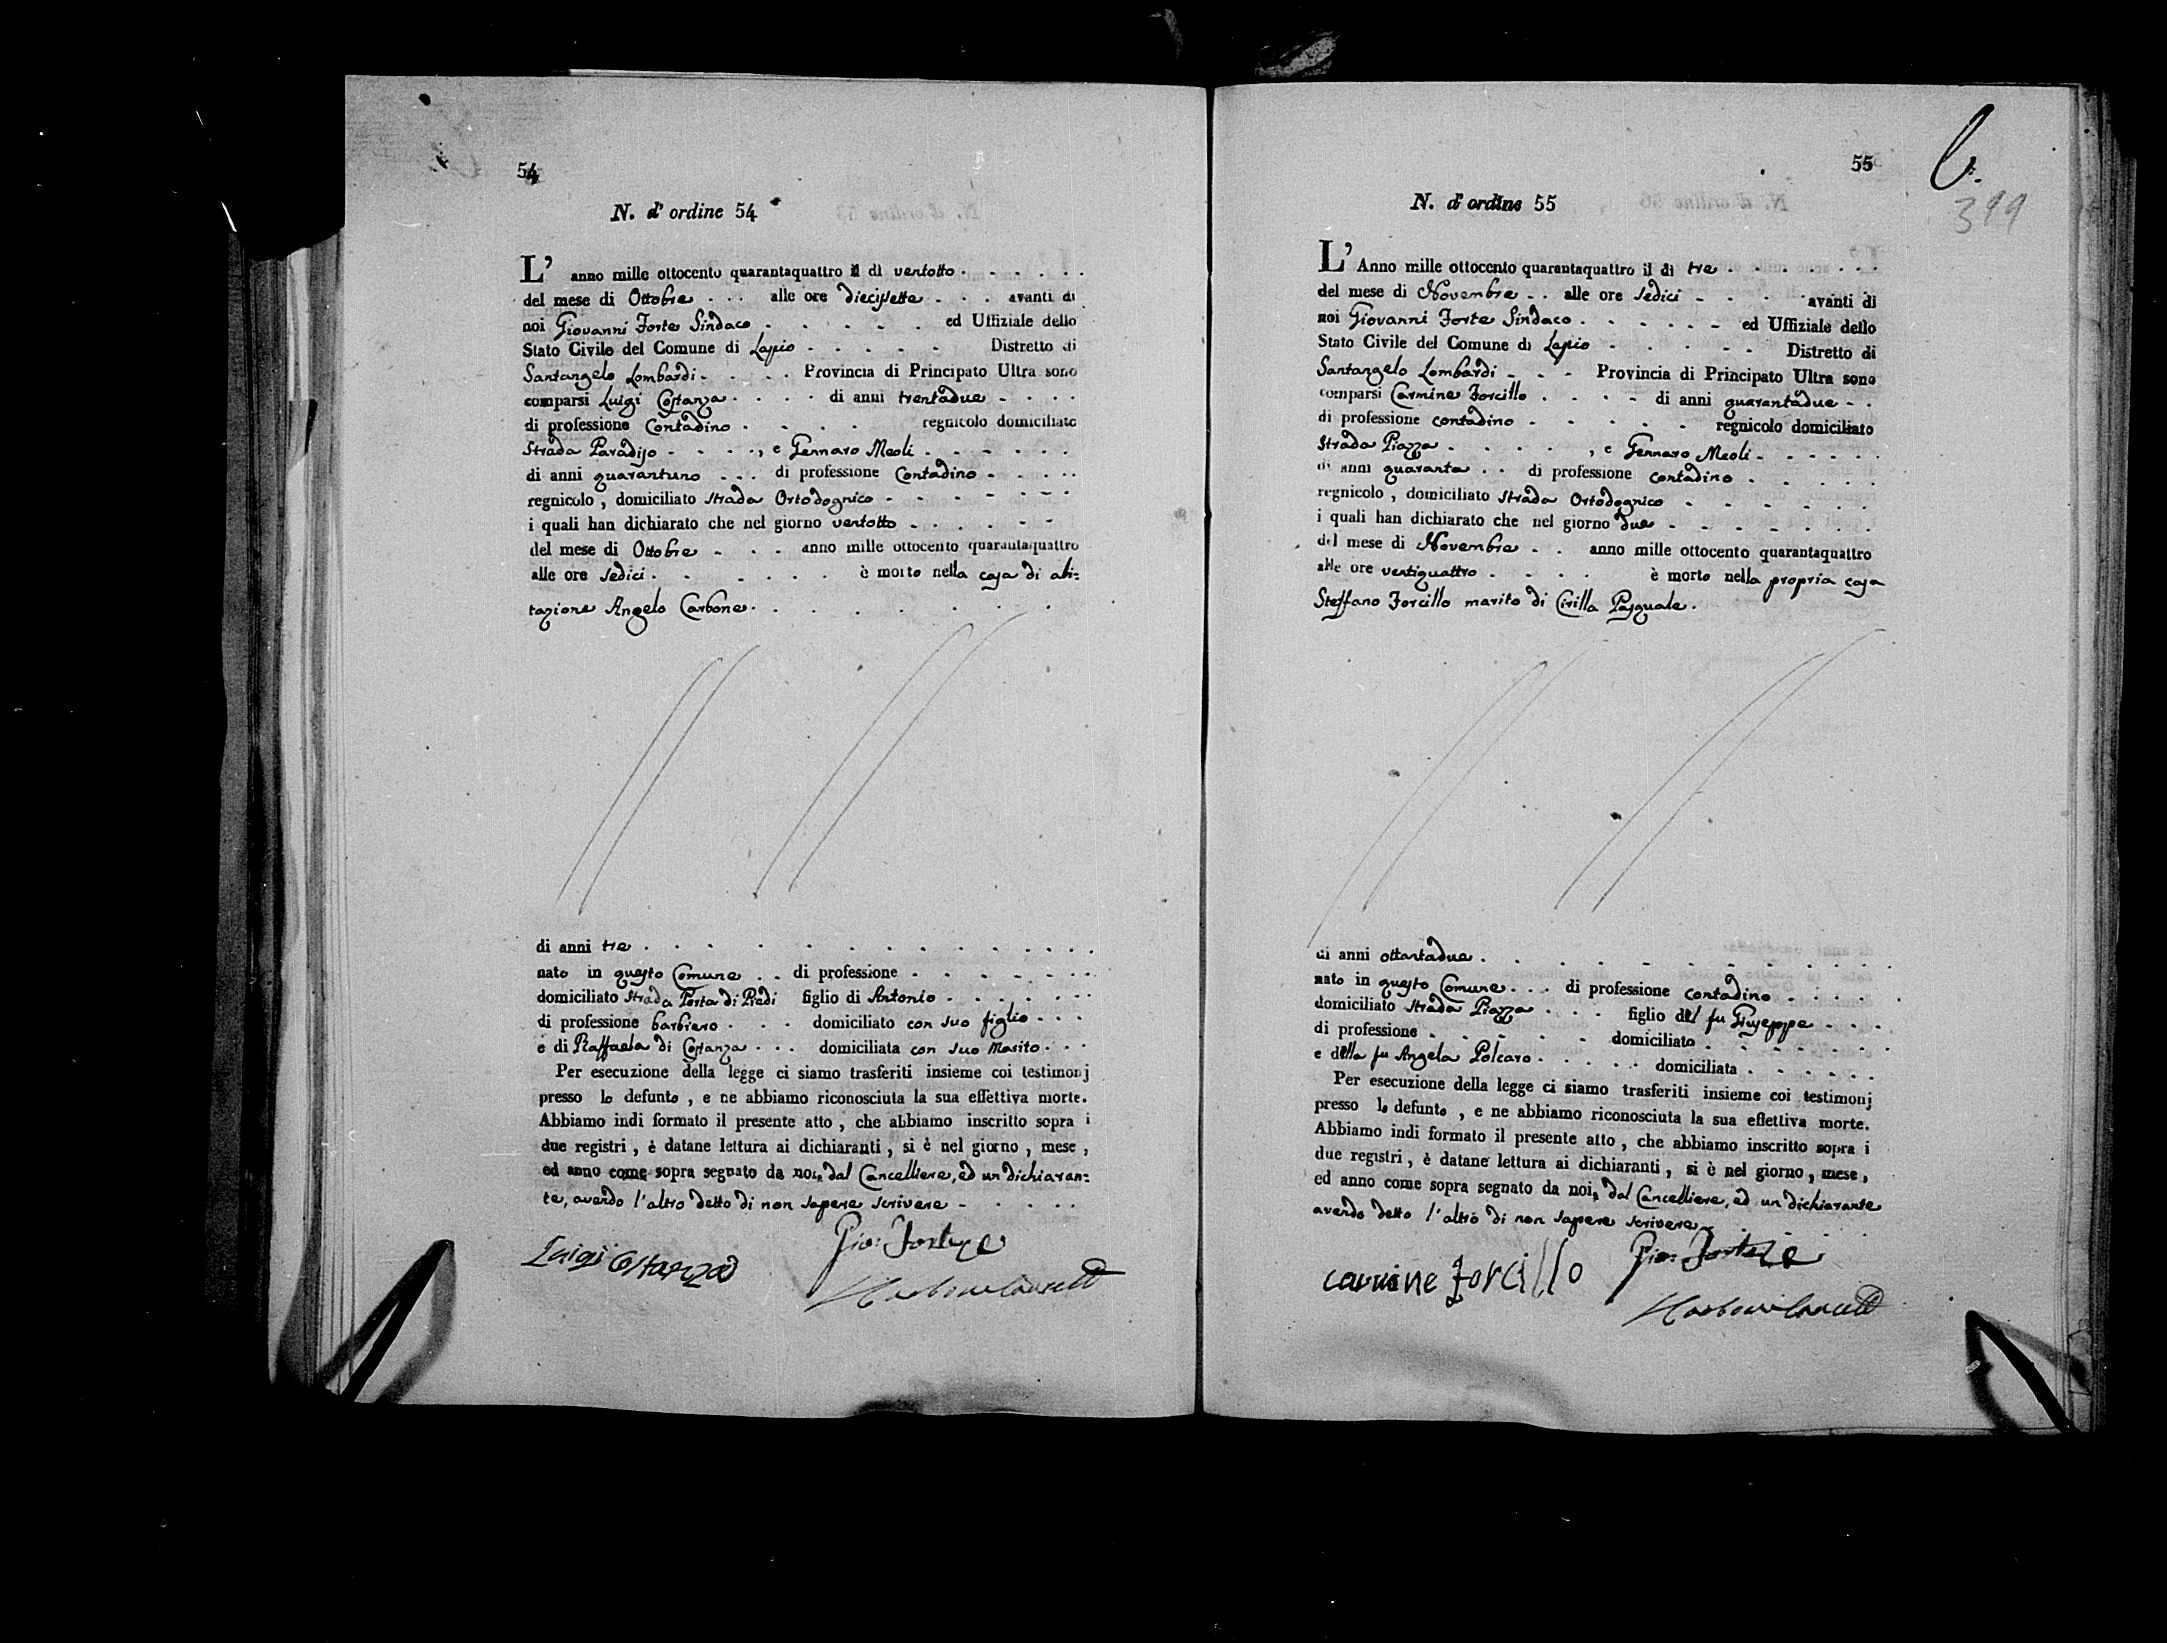 54
N. d' ordine 54
L' anno mille ottocento quarantaquattro il dì ventotto
del mese di Ottobre alle ore diecisette avanti di
noi Giovanni Forte Sindaco ed Uffiziale dello
Stato Civile del Comune di Lapio Distretto di
Santangelo Lombardi Provincia di Principato Ultra sono
comparsi Luigi Costanza di anni trentadue
di professione Contadino regnicolo domiciliato
Strada Paradiso , e Gennaro Meoli
di anni quarantuno di professione Contadino
regnicolo , domiciliato Strada Ortodognico
i quali han dichiarato che nel giorno ventotto
del mese di Ottobre anno mille ottocento quarantaquattro
alle ore sedici è morto nella casa di abi=
tazione Angelo Carbone
di anni tre
nato in questo Comune di professione
domiciliato Strada Porta di Piedi figlio di Antonio
di professione barbiero domiciliato con suo figlio
e di Raffaela di Costanza domiciliata con suo Marito
Per esecuzione della legge ci siamo trasferiti insieme coi testimonj
presso lo defunto , e ne abbiamo riconosciuta la sua effettiva morte.
Abbiamo indi formato il presente atto , che abbiamo inscritto sopra i
due registri , è datane lettura ai dichiaranti , si è nel giorno , mese ,
ed anno come sopra segnato da noi, dal Cancelliere, ed un dichiaran=
te, avendo l'altro detto di non sapere scrivere
Luigi Costanza Gio: Forte
55
N. d' ordine 55
399
L' Anno mille ottocento quarantaquattro il di tre
del mese di Novembre alle ore sedici avanti di
noi Giovanni Forte Sindaco ed Uffiziale dello
Stato Civile del Comune di Lapio Distretto di
Santangelo Lombardi Provincia di Principato Ultra sono
comparsi Carmine Forcillo di anni quarantadue
di professione contadino regnicolo domiciliato
Strada Piazza , e Gennaro Meoli
di anni quaranta di professione contadino
regnicolo , domiciliato Strada Ortodognico
i quali han dichiarato che nel giorno due
del mese di Novembre anno mille ottocento quarantaquattro
alle ore ventiquattro è morto nella propria casa
Steffano Forcillo marito di Cirilla Pasquale.
di anni ottantadue
nato in questo Comune di professione contadino
domiciliato Strada Piazza figlio del fu Giuseppe
di professione domiciliato
e della fu Angela Polcaro domiciliata
Per esecuzione della legge ci siamo trasferiti insieme coi testimonj
presso lo defunto , e ne abbiamo riconosciuta la sua effettiva morte.
Abbiamo indi formato il presente atto , che abbiamo inscritto sopra i
due registri , è datane lettura ai dichiaranti , si è nel giorno , mese ,
ed anno come sopra segnato da noi, dal Cancelliere, ed un dichiarante
avendo detto l'altro di non sapere scrivere
carmine forcillo Gio: Forte